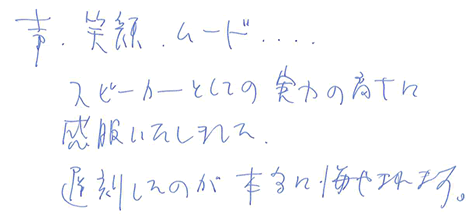 声、笑顔、ムード････
スピーカーとしての実力の高さに
感服いたしました。
遅刻したのが本当に悔やまれます。